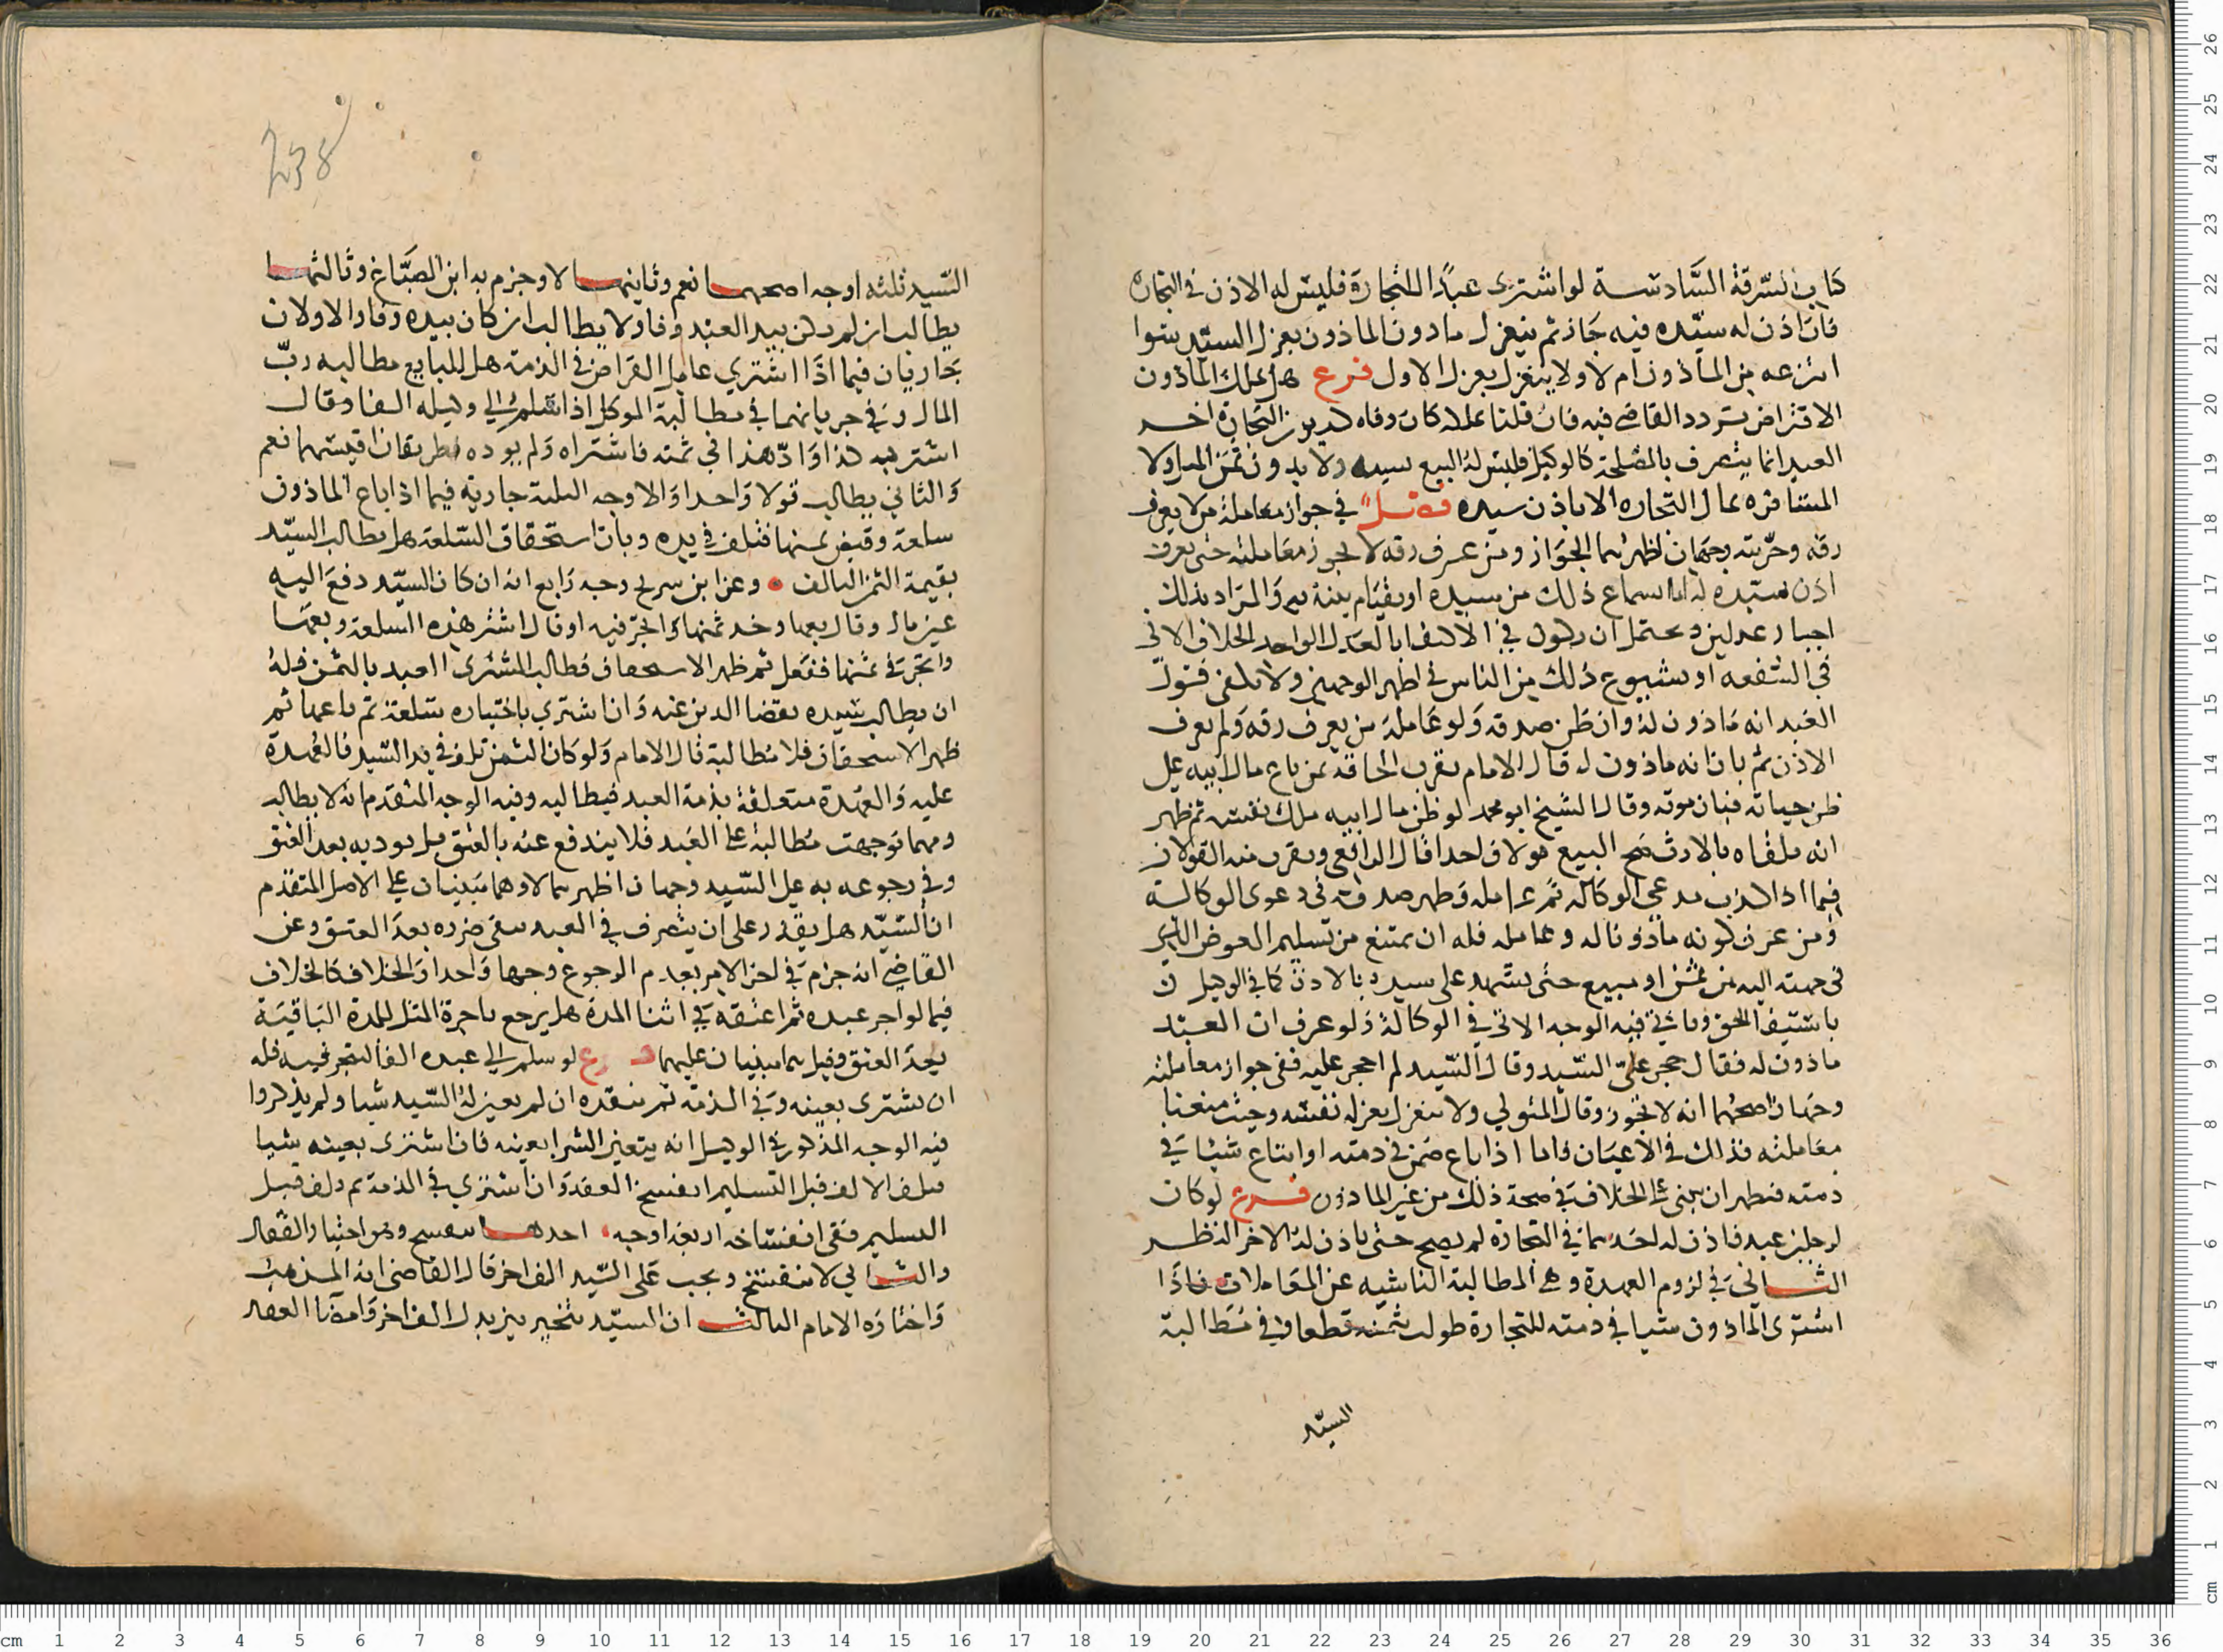 كتاب السرقة السادسة لو اشترى عبدًا للتجارة فليس له الاذن في التجاره
فان اذن له سيّده فيه جاز ثم ينعزل مادون الماذون بعزل السيّد سوا
انتزعه من الماذون ام لا ولا ينعزل بعزل الاول فرع هل يملك الماذون
الاقتراض تردد القاضي فيه فان قلنا يملكه كان وفاه كديون التجارة
العبد انما يتصرف بالمصلحة كالوكيل فليس له البيع نسيه ولا بدون ثمن المثل ولا
المسافره بمال التجاره الا باذن سيده في جواز معاملة من لا يعرف
رقه وحرّيته وجهان اظهرهما الجواز ومن عرف رقه لا يجوز معاملته حتى يعرف
اذن سيده له اما بسماع ذلك من سيده او بقيام بينة به والمراد بذلك
اخبار عدلين ويحتمل ان يكون في الاكتفا بالعدل الواحد الخلاف الاتي
في الشفعه او بشيوع ذلك من الناس في اظهر الوجهين ولا يكفي قول
العبد انه ماذون له وان ظن صدقه ولو عامله من يعرف رقه ولم يعرف
الاذن ثم بان انه ماذون له قال الامام يقرب الحاقه بمن باع مال ابيه على
ظن حياته فبان موته وقال الشيخ ابو محمد لو ظن مال ابيه ملك نفسه ثم ظهر
انه تلقاه بالارث صح البيع قولا واحدا قال الرافعي ويقرب منه القولان
فيما اذا كذب مدعي الوكاله ثم عامله وظهر صدقه في دعوى الوكالة
ومن عرف كونه ماذونا له وعامله فله ان يمتنع من تسليم العوض الذي
في جهته اليه من ثمن او مبيع حتى يشهد على سيده بالاذن كما في الوكيل
باستيفا الحق وياتي فيه الوجه الاتي في الوكالة ولو عرف ان العبد
ماذون له فقال حجر عليّ السيد وقال السّيد لم احجر عليه ففي جواز معاملته
وجهان اصحهما انه لا تجوز وقال المتولي ولا ينعزل بعزله نفسه وحيث منعنا
معاملته فذلك في الاعيان واما اذا باع ضمن في ذمته او ابتاع شيئا في
ذمته فيظهر ان يبنى على الخلاف في صحة ذلك من غير الماذون فرع لو كان
لرجلين عبد فاذن له احدهما في التجارة لم يصح حتى ياذن له الاخر النظر
الثاني في لزوم العهدة وهي المطالبة الناشيه عن المعاملات فاذا
اشترى الماذون شيا في ذمته للتجارة طولب بثمنه قطعا وفي مطالبة
السيّد
السّيد ثلثه اوجه اصحهما نعم وثانيهما لا وجزم به ابن الصبّاغ وثالثهما
يطالب ان لم يكن بيد العبد وفا ولا يطالب ان كان بيده وفا والاولان
جاريان فيما اذا اشترى عامل القراض في الذمة هل للبايع مطالبه ربّ
المال وفي جريانهما في مطالبة الموكل اذا سلم الى وكيله الفا وقال
اشتر به كذا وادّ هذا في ثمنه فاشتراه ولم يوده طريقان اقيسهما نعم
والثاني يطالب قولا واحدا والاوجه الثلثة جارية فيما اذا باع الماذون
سلعة وقبض ثمنها فتلف في يده وبان استحقاق السّلعة هل يطالب السّيّد
بقيمة الثمن التالف وعن ابن سريج وجه رابع انه ان كان السيّد دفع اليه
عين مال وقال بعها وخذ ثمنها واتجر فيه او قال اشتر هذه السلعة وبعها
واتجر في ثمنها ففعل ثم ظهر الاستحقاق فطالب المشتري العبد بالثمن فله
ان يطالب سيده بقضا الدين عنه وان اشتري باختياره سلعة ثم باعها ثم
ظهر الاستحقاق فلا مطالبة قال الامام ولو كان الثمن تلف في يد السّيد فالعهدة
عليه والعهدة متعلقة بذمة العبد فيطالبه وفيه الوجه المتقدم انه لا يطالب
ومهما توجهت مطالبة على العبد فلا يندفع عنه بالعتق بل يوديه بعد العتق
وفي رجوعه به على السّيد وجهان اظهرهما لا وهما مبنيان على الاصل المتقدم
ان السّيّد هل يقدر على ان يتصرف في العبد ببقي ضرره بعد العتق وعن
القاضي انه جزم في اخر الامر بعدم الرجوع وجها واحدا والخلاف كالخلاف
فيما لو اجر عبده ثم اعتقه في اثنا المدة هل يرجع باجرة المثل للمدة الباقية
بعد العتق وقيل هما مبنيان عليهما فرع لو سلم الى عبده الفا ليتجر فيه فله
ان يشترى بعينه وفي الذمة ثم ينقده ان لم يعين له السّيد شيا ولم يذكروا
فيه الوجه المذكور في الوكيل انه يتعين الشرا بعينه فان اشترى بعينه شيا
فتلف الالف قبل التسليم انفسخ العقد وان اشترى في الذمة ثم تلف قبل
التسليم ففي انفساخه اربعة اوجه احدها ينفسح وهو اختيار القفال
والثاني لا ينفسخ ويجب على السّيد الف اخر قال القاضي انه المذهب
واختاره الامام الثالث ان السيّد يتخير بين بدل الف اخر وامضا العقد